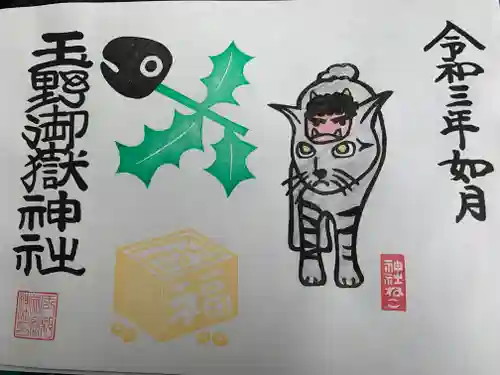 令和三年如月
玉野御嶽神社
福
神社ねこ